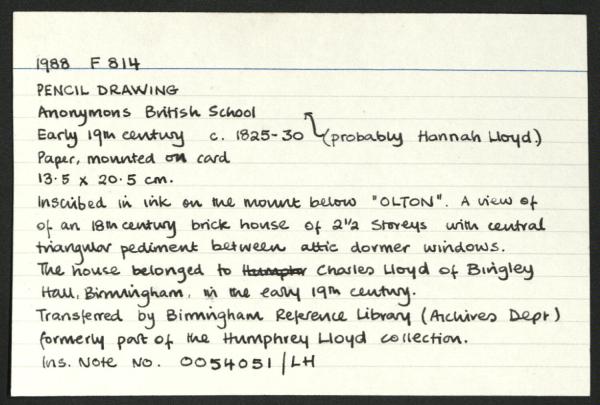 1988 F 814
PENCIL DRAWING
Anonymons British School
Early 19th century c. 1825-30 (probably Hannah Lloyd.)
Paper, mounted on card
13.5 x 20.5 cm.
Inscribed in ink on the mount below "OLTON". A view of
of an 18th century brick house of 2 1/2 storeys with central
triangular pediment between attic dormer windows.
The house belonged to Humphr Charles Lloyd of Bingley
Hall, Birmingham, in the early 19th century.
Transferred by Birmingham Reference Library (Archives Dept)
formerly part of the Humphrey Lloyd collection.
Ins. Note No. 0054051/LH